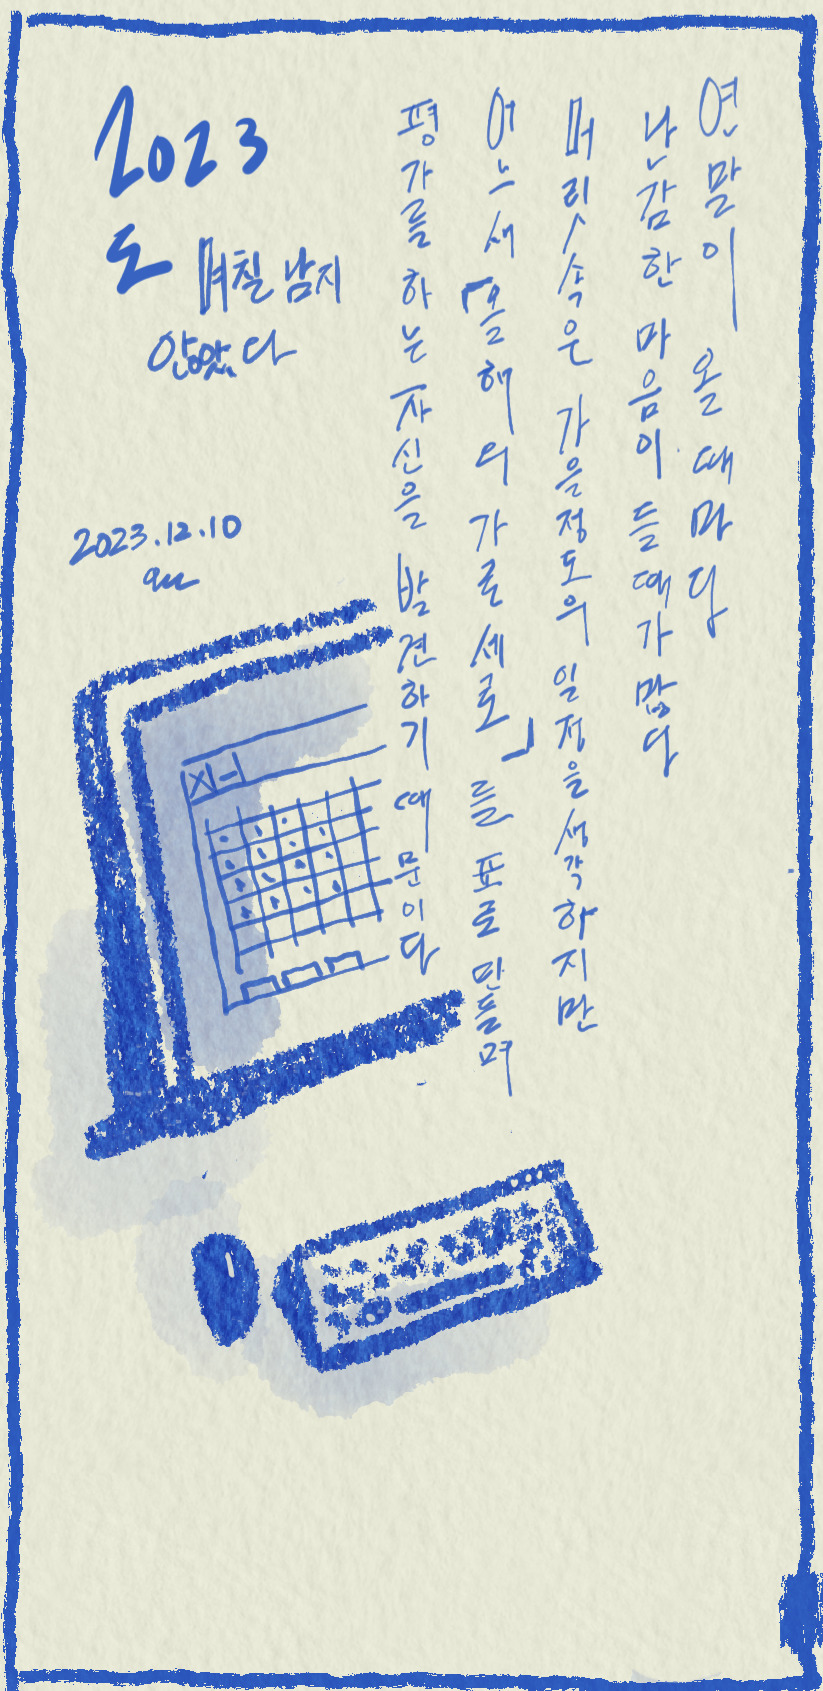 연말이 올 때마다
난감한 마음이 들 때가 많다
머릿속은 가을정도의 일정을 생각하지만
어느새 「올해의 가로세로」를 표로 만들며
평가를 하는 자신을 발견하기 때문이다
2023
도 며칠 남지
않았다
2023.12.10